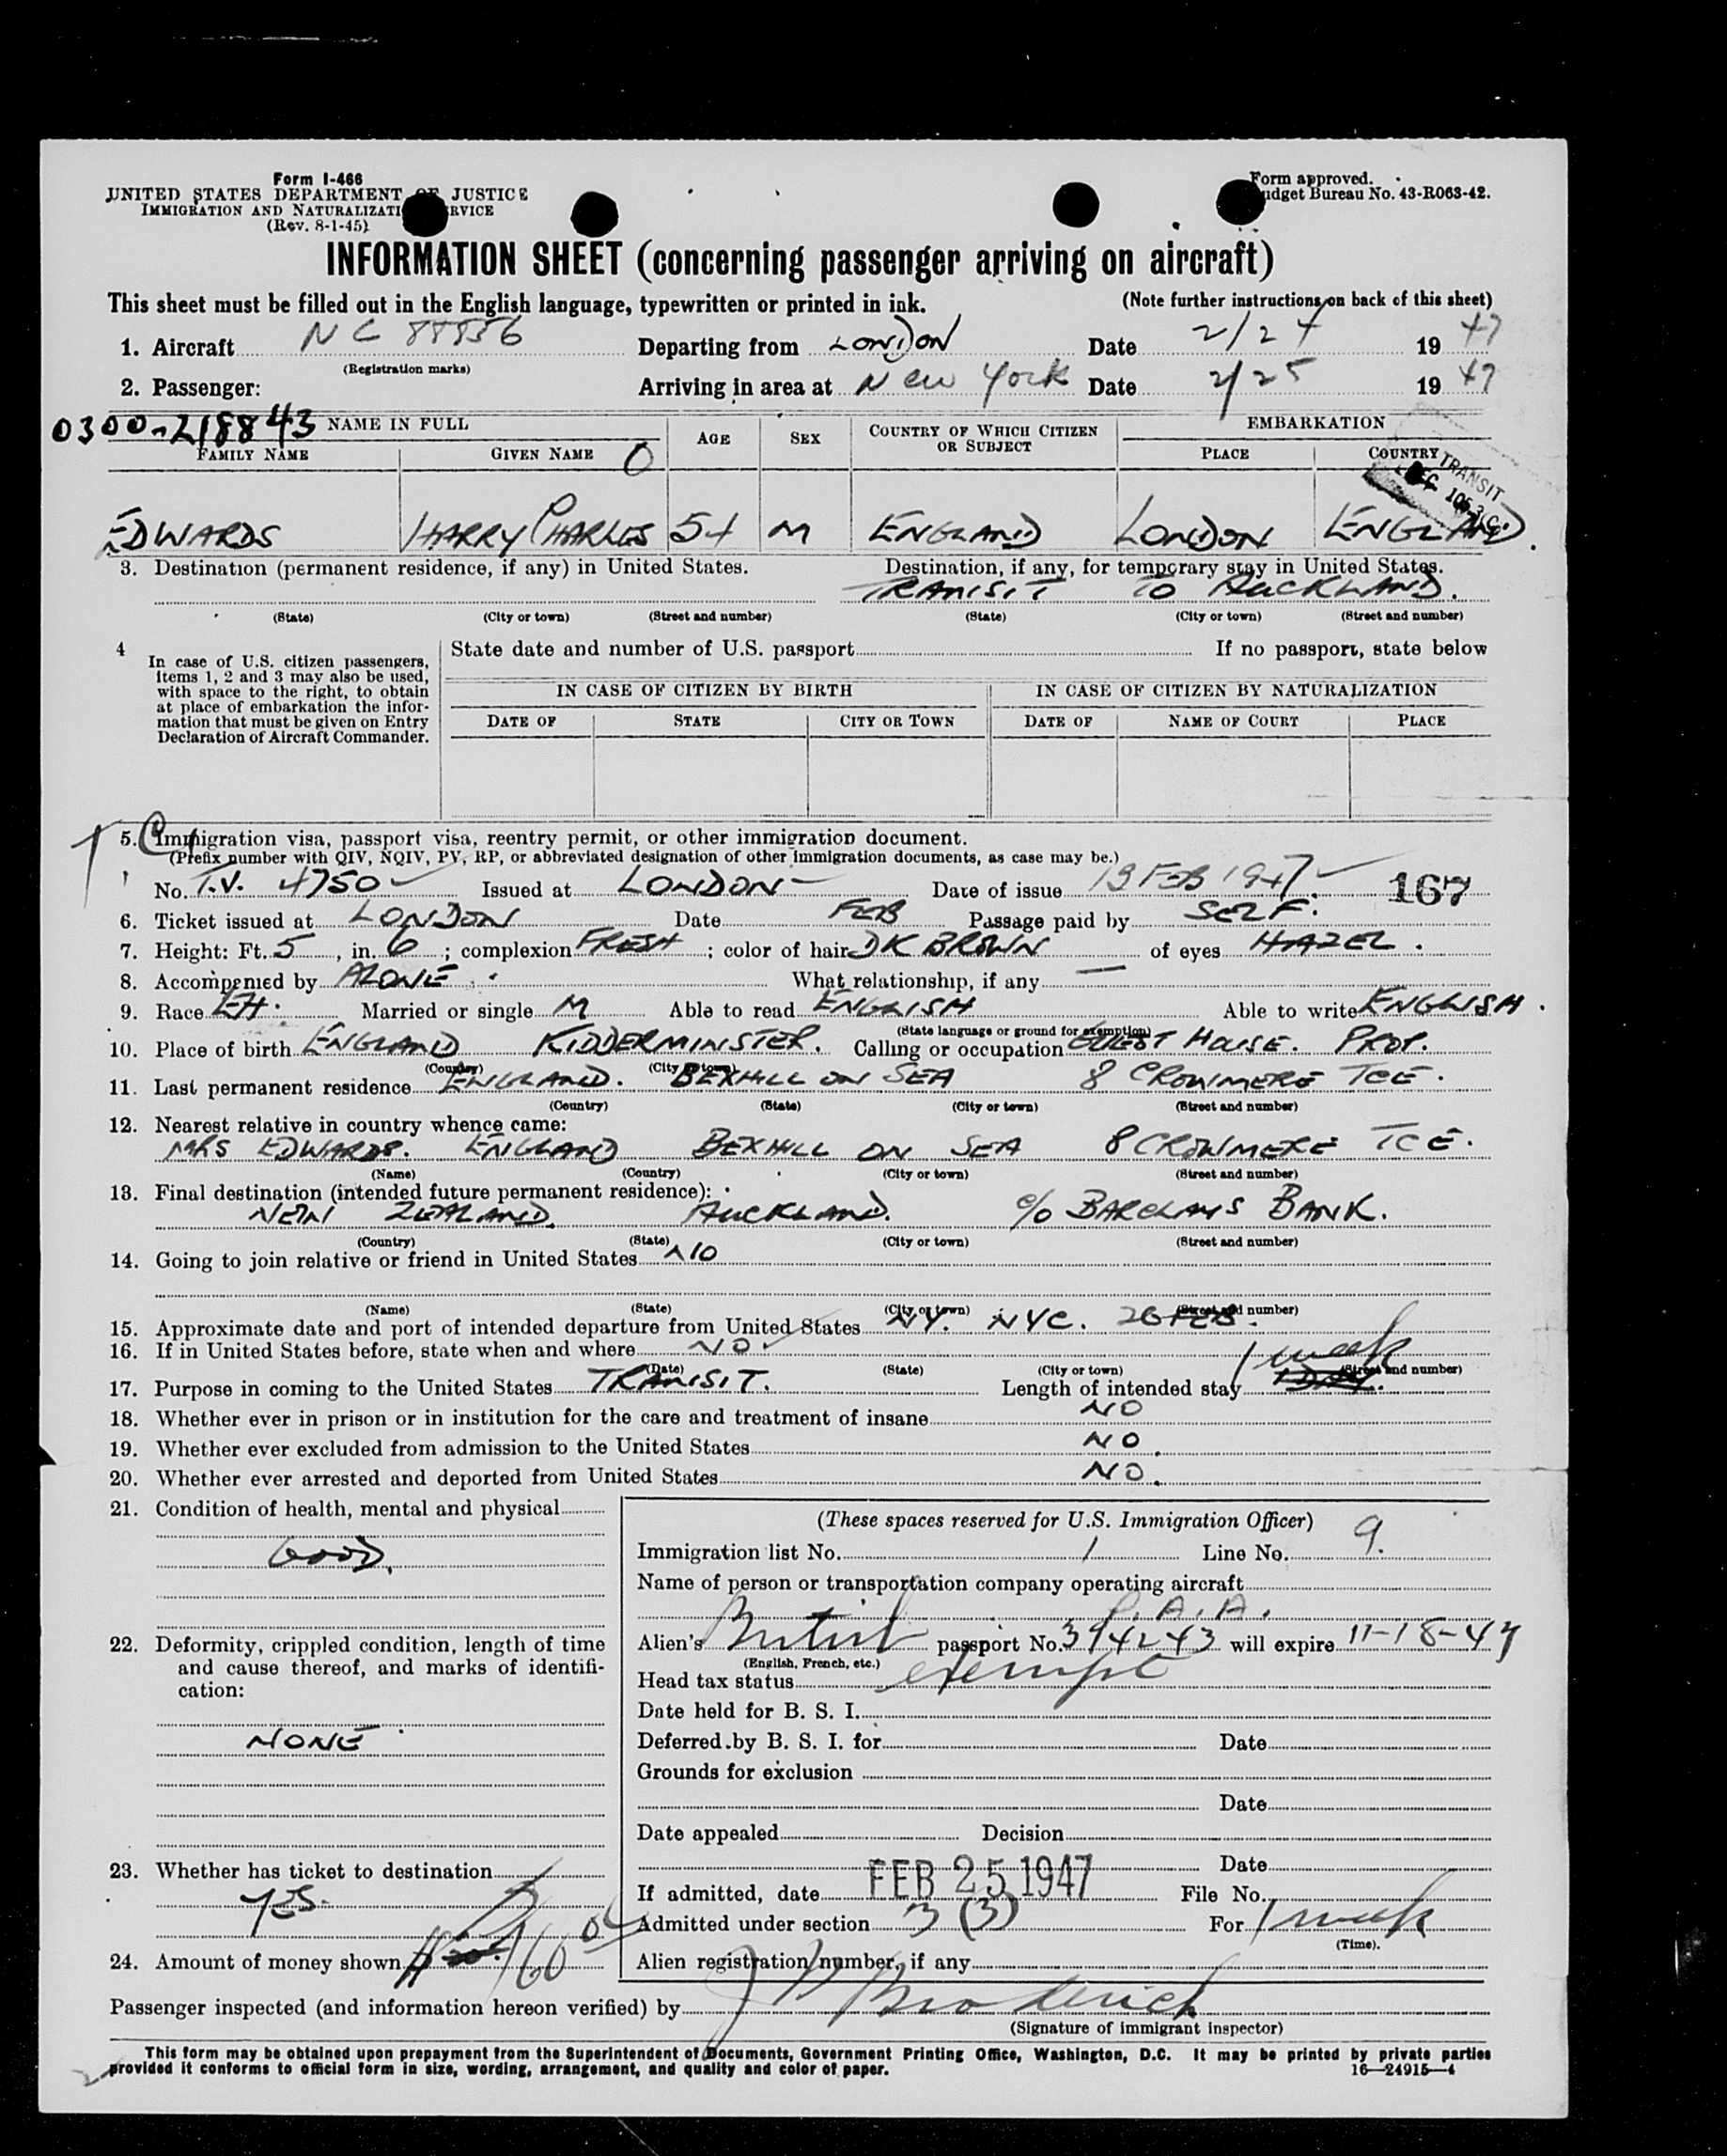 Form I-466
UNITED STATES DEPARTMENT OF JUSTICE
IMMIGRATION AND NATURALIZATI RVICE
(Rev. 8-1-45)
Form approved.
udget Bureau No. 43-R063-42.
INFORMATION SHEET (concerning passenger arriving on aircraft)
This sheet must be filled out in the English language, typewritten or printed in ink. (Note further instructions on back of this sheet)
1. Aircraft NC 88836 Departing from LONDON Date 2/24 1947
(Registration marks)
2. Passenger: Arriving in area at New York Date 2/25 1947
0300-218843 NAME IN FULL AGE SEX COUNTRY OF WHICH CITIZEN OR SUBJECT EMBARKATION
FAMILY NAME GIVEN NAME O PLACE COUNTRY
TRANSIT
EDWARDS HARRY CHARLES 54 M ENGLAND LONDON ENGLAND.
3. Destination (permanent residence, if any) in United States. Destination, if any, for temporary stay in United States.
TRANSIT TO AUCKLAND.
(State) (City or town) (Street and number) (State) (City or town) (Street and number)
4 In case of U.S. citizen passengers, items 1, 2 and 3 may also be used, with space to the right, to obtain at place of embarkation the information that must be given on Entry Declaration of Aircraft Commander.
State date and number of U.S. passport If no passport, state below
IN CASE OF CITIZEN BY BIRTH IN CASE OF CITIZEN BY NATURALIZATION
DATE OF STATE CITY OR TOWN DATE OF NAME OF COURT PLACE
5. Immigration visa, passport visa, reentry permit, or other immigration document.
(Prefix number with QIV, NQIV, PV, RP, or abbreviated designation of other immigration documents, as case may be.)
No. T.V. 4750 Issued at LONDON Date of issue 13 FEB 1947 167
6. Ticket issued at LONDON Date FEB Passage paid by SELF.
7. Height: Ft. 5, in. 6; complexion FRESH; color of hair DK BROWN of eyes HAZEL.
8. Accompanied by ALONE. What relationship, if any —
9. Race EH. Married or single M Able to read ENGLISH Able to write ENGLISH.
(State language or ground for exemption)
10. Place of birth ENGLAND KIDDERMINSTER. Calling or occupation GUEST HOUSE. PROP.
(Country) (City or town)
11. Last permanent residence ENGLAND. BEXHILL ON SEA 8 CROWMERE TCE.
(Country) (State) (City or town) (Street and number)
12. Nearest relative in country whence came:
MRS EDWARDS. ENGLAND BEXHILL ON SEA 8 CROWMERE TCE.
(Name) (Country) (City or town) (Street and number)
13. Final destination (intended future permanent residence):
NEW ZEALAND AUCKLAND. c/o BARCLAYS BANK.
(Country) (State) (City or town) (Street and number)
14. Going to join relative or friend in United States NO
(Name) (State) (City or town) (Street and number)
15. Approximate date and port of intended departure from United States NY. NYC. 26 FEB.
16. If in United States before, state when and where NO.
(Date) (State) (City or town) (Street and number)
17. Purpose in coming to the United States TRANSIT. Length of intended stay 1 week
18. Whether ever in prison or in institution for the care and treatment of insane NO
19. Whether ever excluded from admission to the United States NO.
20. Whether ever arrested and deported from United States NO.
21. Condition of health, mental and physical
GOOD.
22. Deformity, crippled condition, length of time and cause thereof, and marks of identification:
NONE
23. Whether has ticket to destination
YES.
24. Amount of money shown 160 00
(These spaces reserved for U.S. Immigration Officer)
Immigration list No. 1 Line No. 9.
Name of person or transportation company operating aircraft
P.A.A.
Alien's British passport No. 394243 will expire 11-18-47
(English, French, etc.)
Head tax status exempt
Date held for B. S. I.
Deferred by B. S. I. for Date
Grounds for exclusion
Date
Date appealed Decision
Date
If admitted, date FEB 25 1947 File No.
Admitted under section 3 (3) For 1 week
(Time).
Alien registration number, if any
Passenger inspected (and information hereon verified) by J Broderick
(Signature of immigrant inspector)
This form may be obtained upon prepayment from the Superintendent of Documents, Government Printing Office, Washington, D.C. It may be printed by private parties
provided it conforms to official form in size, wording, arrangement, and quality and color of paper. 16—24915-4